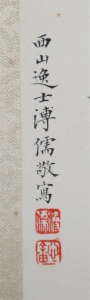 西山逸士溥儒敬寫